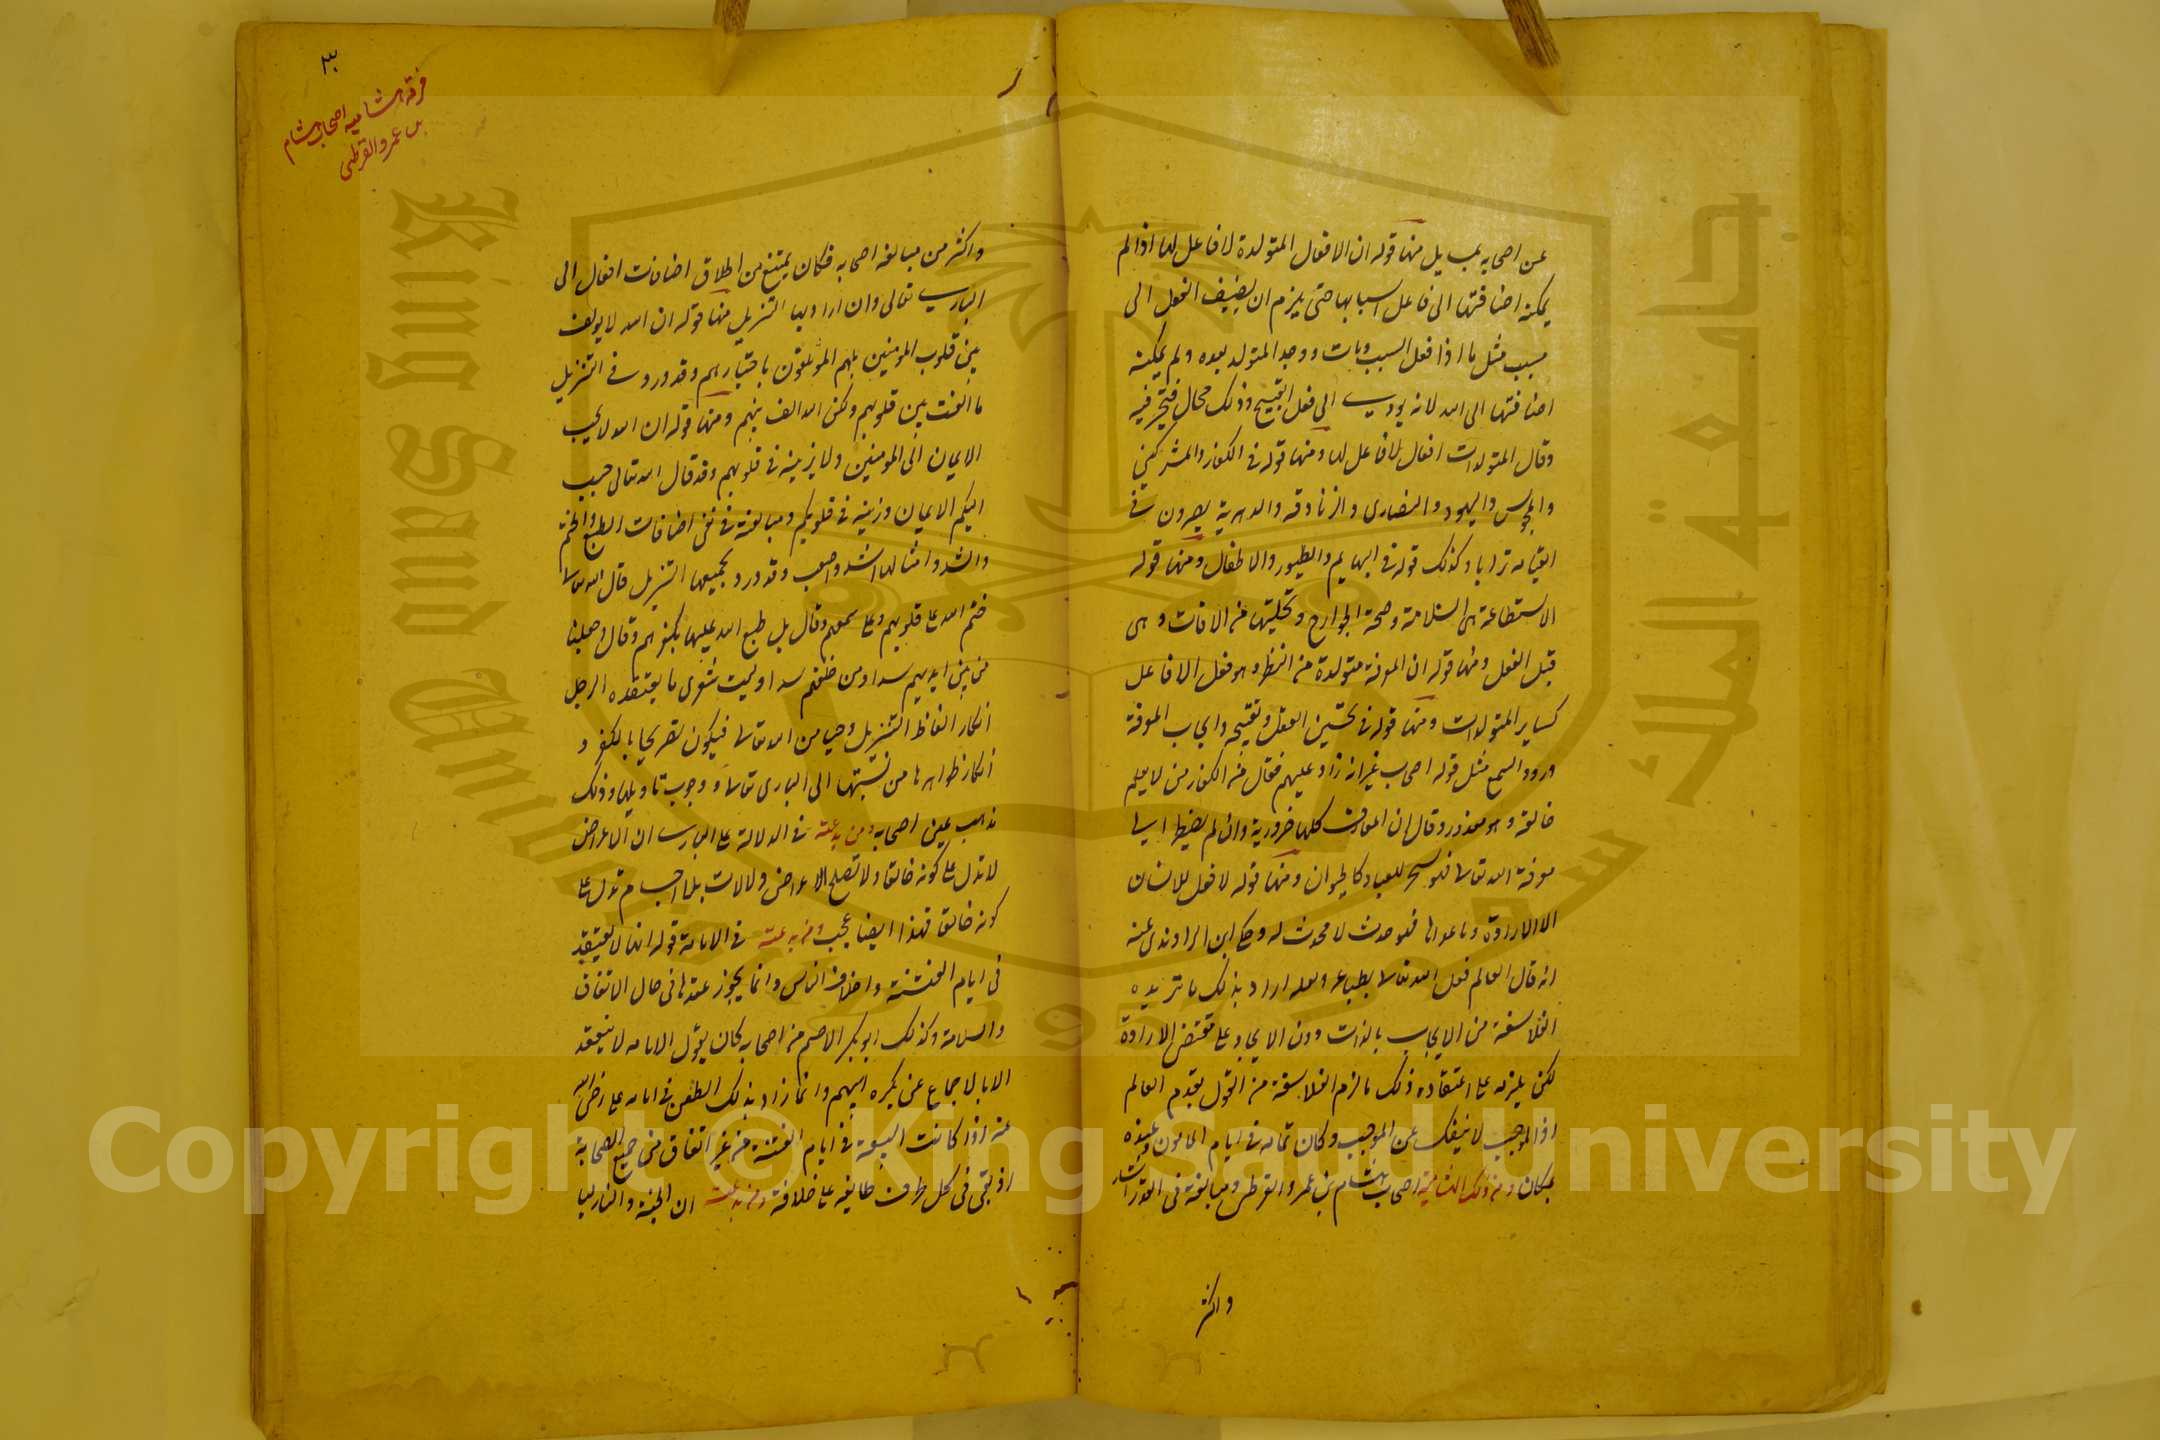 عن اصحابه بمسايل منها قوله ان الافعال المتولدة لا فاعل لها اذا لم
يمكنه اضافتها الى فاعل اسبابها حتى يلزم ان يضيف الفعل الى
سبب مثل ما اذا فعل السبب ومات ووجد المتولد بعده ولم يمكنه
اضافتها الى الله لانه يودى الى فعل القبيح وذلك محال فتحير فيه
وقال المتولدات افعال لا فاعل لها ومنها قوله فى الكفار والمشركين
والمجوس واليهود والنصارى والزنادقه والدهرية يصيرون فى
القيامه ترابا وكذلك قوله فى البهايم والطيور والاطفال ومنها قوله
الاستطاعة هى السلامة وصحة الجوارح وتخليتها من الافات وهى
قبل الفعل ومنها قوله ان المعرفة متولدة من النظر وهو فعل لا فاعل
كساير المتولدات ومنها قوله فى تحسين العقل وتقبيحه وايجاب المعرفة
ورود السمع مثل قوله اصحاب غير انه زاد عليهم فقال من الكفار من لا يعلم
خالقه وهو معذور وقال ان المعارف كلها ضرورية وان لم يضطر الى
معرفة الله تعالى فهو مسخر للعباد كالحيوان ومنها قوله لا فعل للانسان
الا الارادة وما عداها فهو حدث لا محدث له وحكى ابن الراوندى عنه
انه قال العالم فعل الله تعالى بطباعه ولعله اراد بذلك ما تريده
الفلاسفة من الايجاب بالذات دون الايجاد على مقتضى الارادة
لكن يلزمه على اعتقاده ذلك ما لزم الفلاسفة من القول بقدم العالم
اذ الموجب لا ينفك عن الموجب وكان ثمامه فى ايام المامون وعنده
بمكان ومن ذلك الهشامية اصحاب هشام بن عمرو القرطى ومبالغته فى القدر اشد
واكثر
٣٠
فرقة هشاميه اصحاب هشام
بن عمرو القرطى
واكثر من مبالغه اصحابه فكان يمتنع من اطلاق اضافات افعال الى
البارى تعالى وان اراد بها التنزيل منها قوله ان الله لا يولف
بين قلوب المومنين بل هم الموتلفون باختيارهم وقد ورد فى التنزيل
ما الفت بين قلوبهم ولكن الله الف بينهم ومنها قوله ان الله لا يحبب
الايمان الى المومنين ولا يزينه فى قلوبهم وقد قال الله تعالى حبب
اليكم الايمان وزينه فى قلوبكم ومبالغته فى نفى اضافات الطبع والختم
والسد وامثالها اشد واصعب وقد ورد بجميعها التنزيل قال الله تعالى
ختم الله على قلوبهم وعلى سمعهم وقال بل طبع الله عليها بكفرهم وقال وجعلنا
من بين ايديهم سدا ومن خلفهم سدا وليت شعرى ما يعتقده الرجل
انكار الفاظ التنزيل وحيا من الله تعالى فيكون تصريحا بالكفر و
انكار ظواهرها من نسبتها الى البارى تعالى ووجوب تاويلها وذلك
مذهب عين اصحابه ومن بدعته فى الدلالة على البارى ان الاعراض
لا تدل على كونه خالقا ولا تصلح الاعراض دلالات بل الاجسام تدل على
كونه خالقا فهذا ايضا عجب ومن بدعته فى الامامة قوله انها لا تعتقد
فى ايام الفتنة واختلاف الناس وانما يجوز عقدها فى حال الاتفاق
والسلامة وكذلك ابو بكر الاصم من اصحابه كان يقول الامامه لا تنعقد
الا بالاجماع عن بكره ابيهم وانما زاد بذلك الطعن فى امامه على رضى الله
عنه اذ كانت البيعة فى ايام الفتنة من غير اتفاق من جميع الصحابة
اذ بقى فى كل طرف طايفه على خلافة ومن بدعته ان الجنة والنار ليسا
King Saud University
جامعة الملك سعود
1957
Copyright © King Saud University